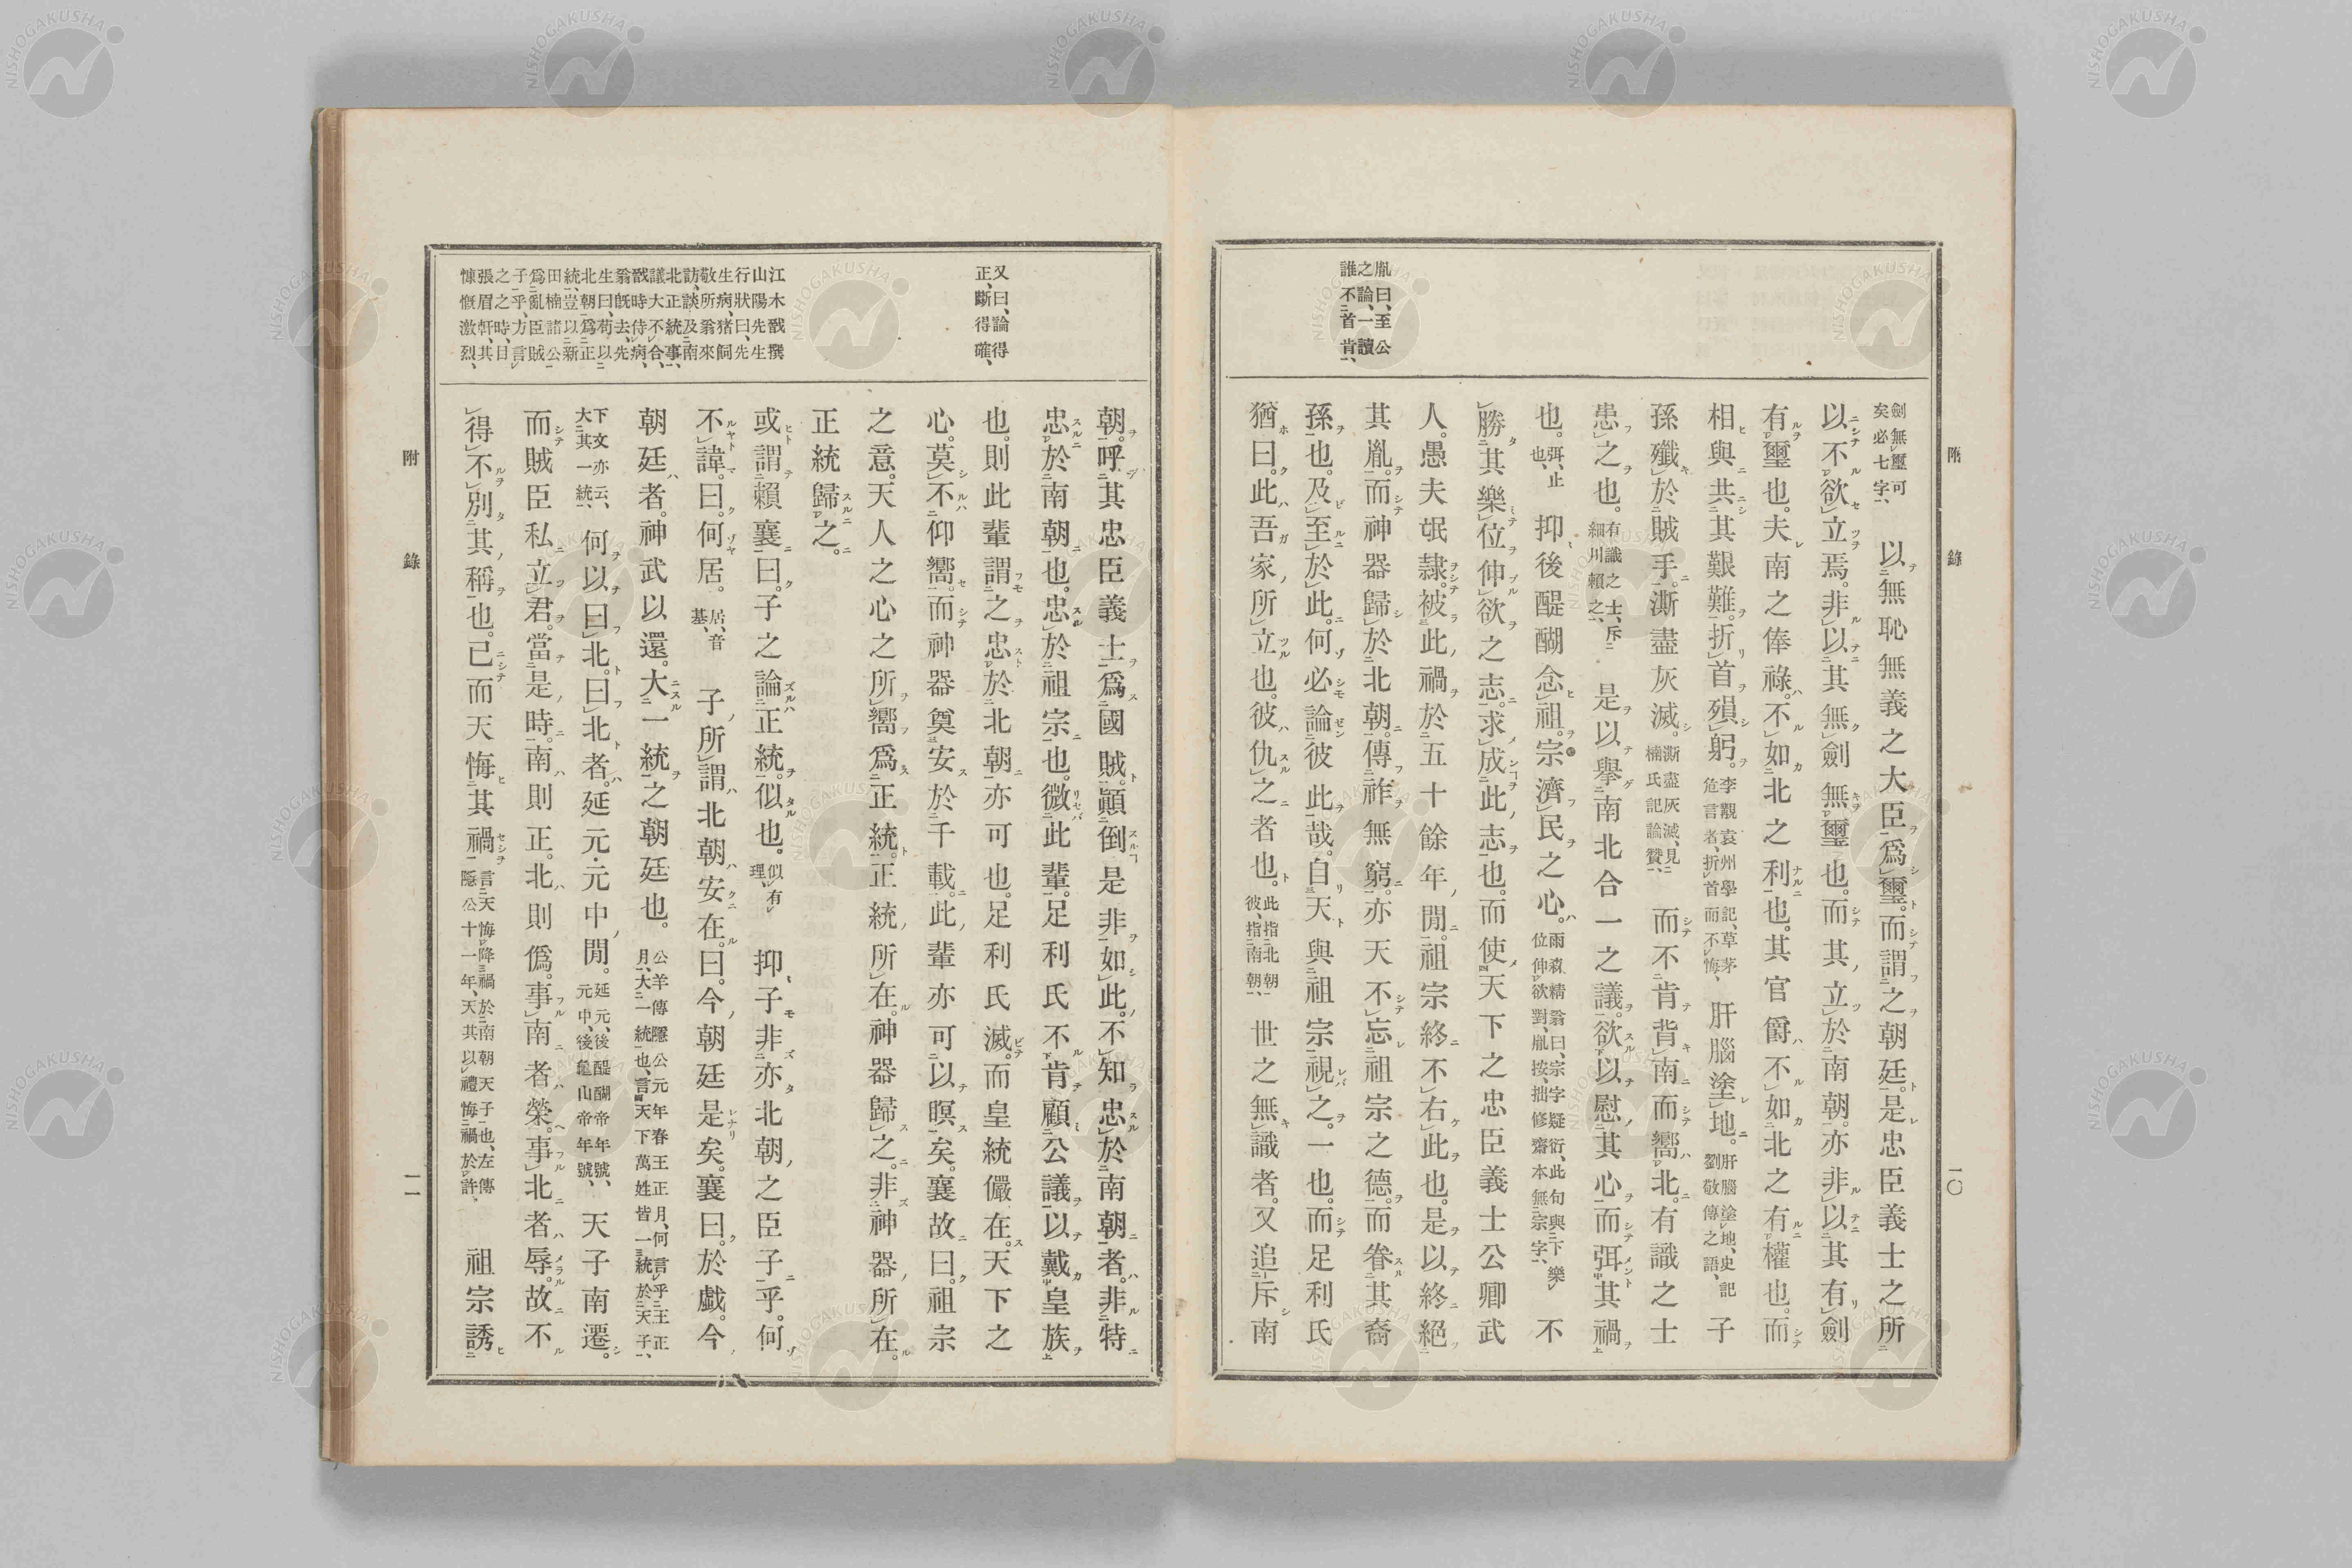 附錄
一〇
胤曰、至公
之論、一讀
誰不首肯、
劍無璽可矣必七字、以無恥無義之大臣爲璽。而謂之朝廷。是忠臣義士之所
以不欲立焉。非以其無劍無璽也。而其立於南朝。亦非以其有劍
有璽也。夫南之俸祿。不如北之利也。其官爵不如北之有權也。而
相與共其艱難。折首殞躬。李覯袁州學記、草茅危言者、折首而不悔、肝腦塗地。肝腦塗地、史記劉敬傳之語、子
孫殲於賊手。澌盡灰滅。澌盡灰滅、見楠氏記論贊、而不肯背南而嚮北。有識之士
患之也。有識之士、斥細川賴之、是以擧南北合一之議。欲以慰其心。而弭其禍
也。弭、止也、抑後醍醐念祖。宗濟民之心。雨森精翁曰、宗字疑衍、此句與下樂位伸欲對、胤按、拙修齋本無宗字、不
勝其樂位伸欲之志。求成此志也。而使天下之忠臣義士公卿武
人。愚夫氓隷。被此禍於五十餘年閒。祖宗終不右此也。是以終絕
其胤。而神器歸於北朝。傳祚無窮。亦天不忘祖宗之德。而眷其裔
孫也。及至於此。何必論彼此哉。自天與祖宗視之。一也。而足利氏
猶曰。此吾家所立也。彼仇之者也。此指北朝、彼指南朝、世之無識者。又追斥南
附錄
一一
又曰、論得
正、斷得確、
江木戩撰
山陽先生
行狀曰、先
生病、猪飼
敬所翁來
訪、談及南
北正統事、
議大不合、
戩時侍病、
翁既去、先
生曰、苟以
北朝爲正
統、豈以新
田楠諸公
爲亂臣賊
子乎、方言
之之時、日
張眉軒、其
慷慨激烈、
朝。呼其忠臣義士爲國賊。顚倒是非如此。不知忠於南朝者。非特
忠於南朝也。忠於祖宗也。微此輩。足利氏不肯顧公議以戴皇族
也。則此輩謂之忠於北朝亦可也。足利氏滅。而皇統儼在。天下之
心。莫不仰嚮。而神器奠安於千載。此輩亦可以瞑矣。襄故曰。祖宗
之意。天人之心之所嚮爲正統。正統所在。神器歸之。非神器所在。
正統歸之。
或謂賴襄曰。子之論正統。似也。似有理、抑子非亦北朝之臣子乎。何
不諱。曰。何居。居、音基、子所謂北朝安在。曰。今朝廷是矣。襄曰。於戲。今
朝廷者。神武以還。大一統之朝廷也。公羊傳隱公元年春王正月、何言乎王正月、大一統也、言天下萬姓皆一統於天子、
下文亦云、大其一統、何以曰北。曰北者。延元・元中閒。延元、後醍醐帝年號、元中、後龜山帝年號、天子南遷。
而賊臣私立君。當是時。南則正。北則僞。事南者榮。事北者辱。故不
得不別其稱也。已而天悔其禍言天悔降禍於南朝天子也、左傳隱公十一年、天其以禮悔禍於許。祖宗誘